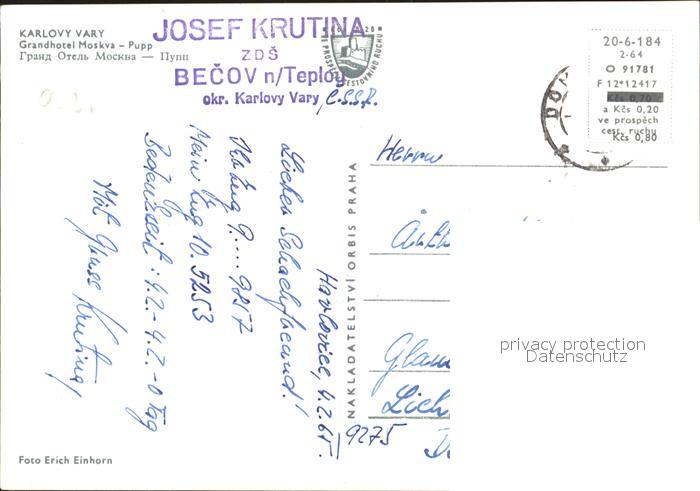 KARLOVY VARY
Grandhotel Moskva – Pupp
Гранд Отель Москва — Пупп
JOSEF KRUTINA
ZDŠ
BEČOV n/Teplou
okr. Karlovy Vary Č.S.S.R.
20-6-184
2-64
O 91781
F 12*12417
Kčs 0,70
a Kčs 0,20
ve prospěch
cest. ruchu
Kčs 0,80
Havlovice, 4.2.65.
Lieber Schachfreund!
9.... 9857
Mein Zug 10. 5253
Bedenkzeit: 4.2.-4.2.-0 Tag
Mit Gruss Krutina,
NAKLADATELSTVÍ ORBIS PRAHA
Herrn
9275
privacy protection
Datenschutz
Foto Erich Einhorn